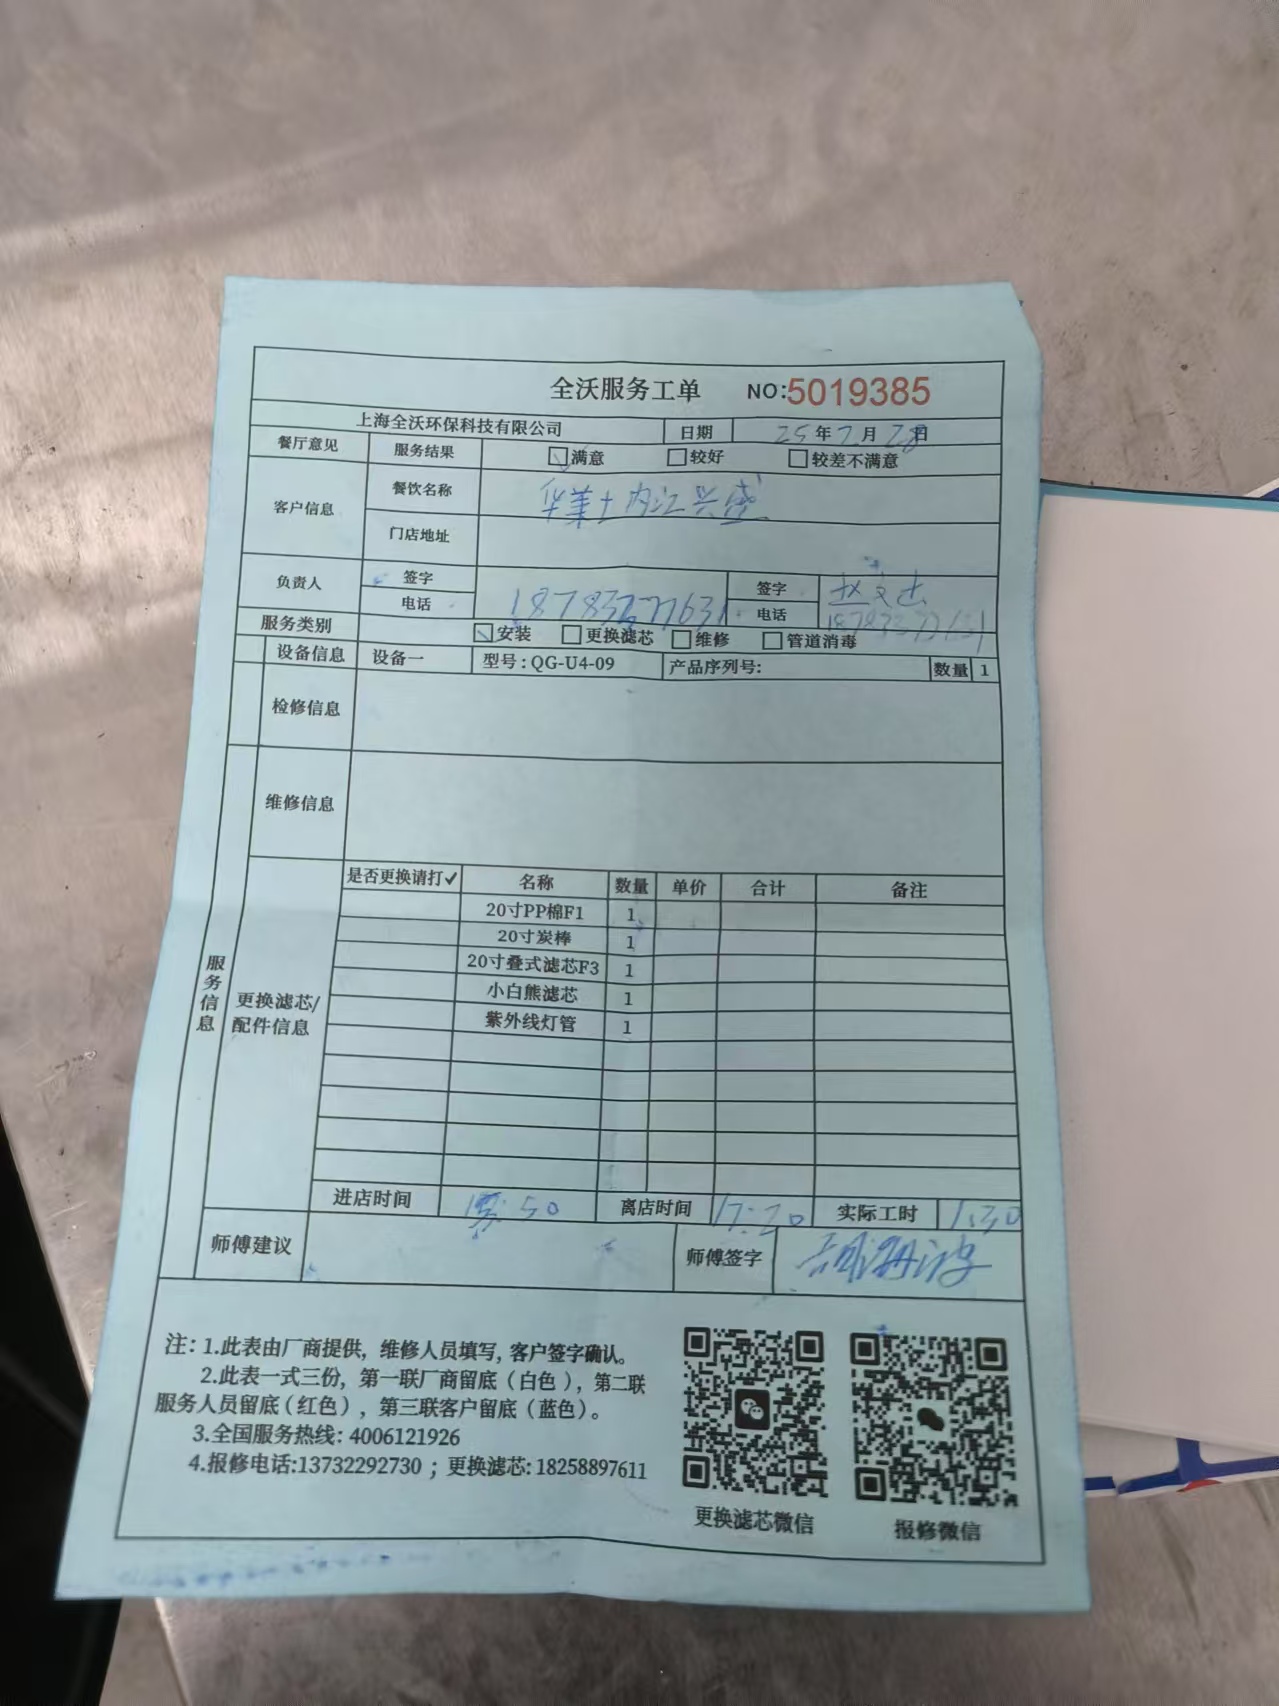 全沃服务工单 NO:5019385
上海全沃环保科技有限公司 日期 25年7月28日
餐厅意见 服务结果 满意 较好 较差不满意
客户信息 餐饮名称 华莱士内江兴盛
门店地址
负责人 签字 签字 赵文
电话 18783277631 电话 18783277631
服务类别 安装 更换滤芯 维修 管道消毒
设备信息 设备一 型号:QG-U4-09 产品序列号: 数量 1
检修信息
维修信息
服务信息
更换滤芯/配件信息
是否更换请打✓ 名称 数量 单价 合计 备注
20寸PP棉F1 1
20寸炭棒 1
20寸叠式滤芯F3 1
小白熊滤芯 1
紫外线灯管 1
进店时间 :50 离店时间 17:20 实际工时 1.30
师傅建议 师傅签字
注:1.此表由厂商提供,维修人员填写,客户签字确认。
2.此表一式三份,第一联厂商留底(白色),第二联
服务人员留底(红色),第三联客户留底(蓝色)。
3.全国服务热线:4006121926
4.报修电话:13732292730;更换滤芯:18258897611
更换滤芯微信 报修微信